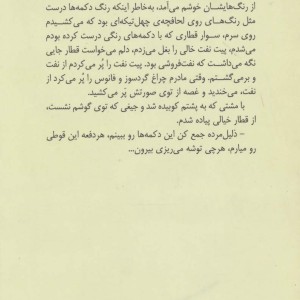 از رنگ‌هایشان خوشم می‌آمد، به‌خاطر اینکه رنگ دکمه‌ها درست
مثل رنگ‌های روی لحافچه‌ی چهل‌تیکه‌ای بود که می‌کشیدم
روی سرم، سوار قطاری که با دکمه‌های رنگی درست کرده بودم
می‌شدم، پیت نفت خالی را بغل می‌زدم، دلم می‌خواست قطار جایی
نگه می‌داشت که نفت‌فروشی بود. پیت نفت را پُر می‌کردم از نفت
و برمی‌گشتم. وقتی مادرم چراغ گردسوز و فانوس را پُر می‌کرد از
نفت، می‌خندید و غصه از توی صورتش پَر می‌کشید.
با مشتی که به پشتم کوبیده شد و جیغی که توی گوشم نشست،
از قطار خیالی پیاده شدم.
- ذلیل‌مرده جمع کن این دکمه‌ها رو ببینم، هردفعه این قوطی
رو میارم، هرچی توشه می‌ریزی بیرون...